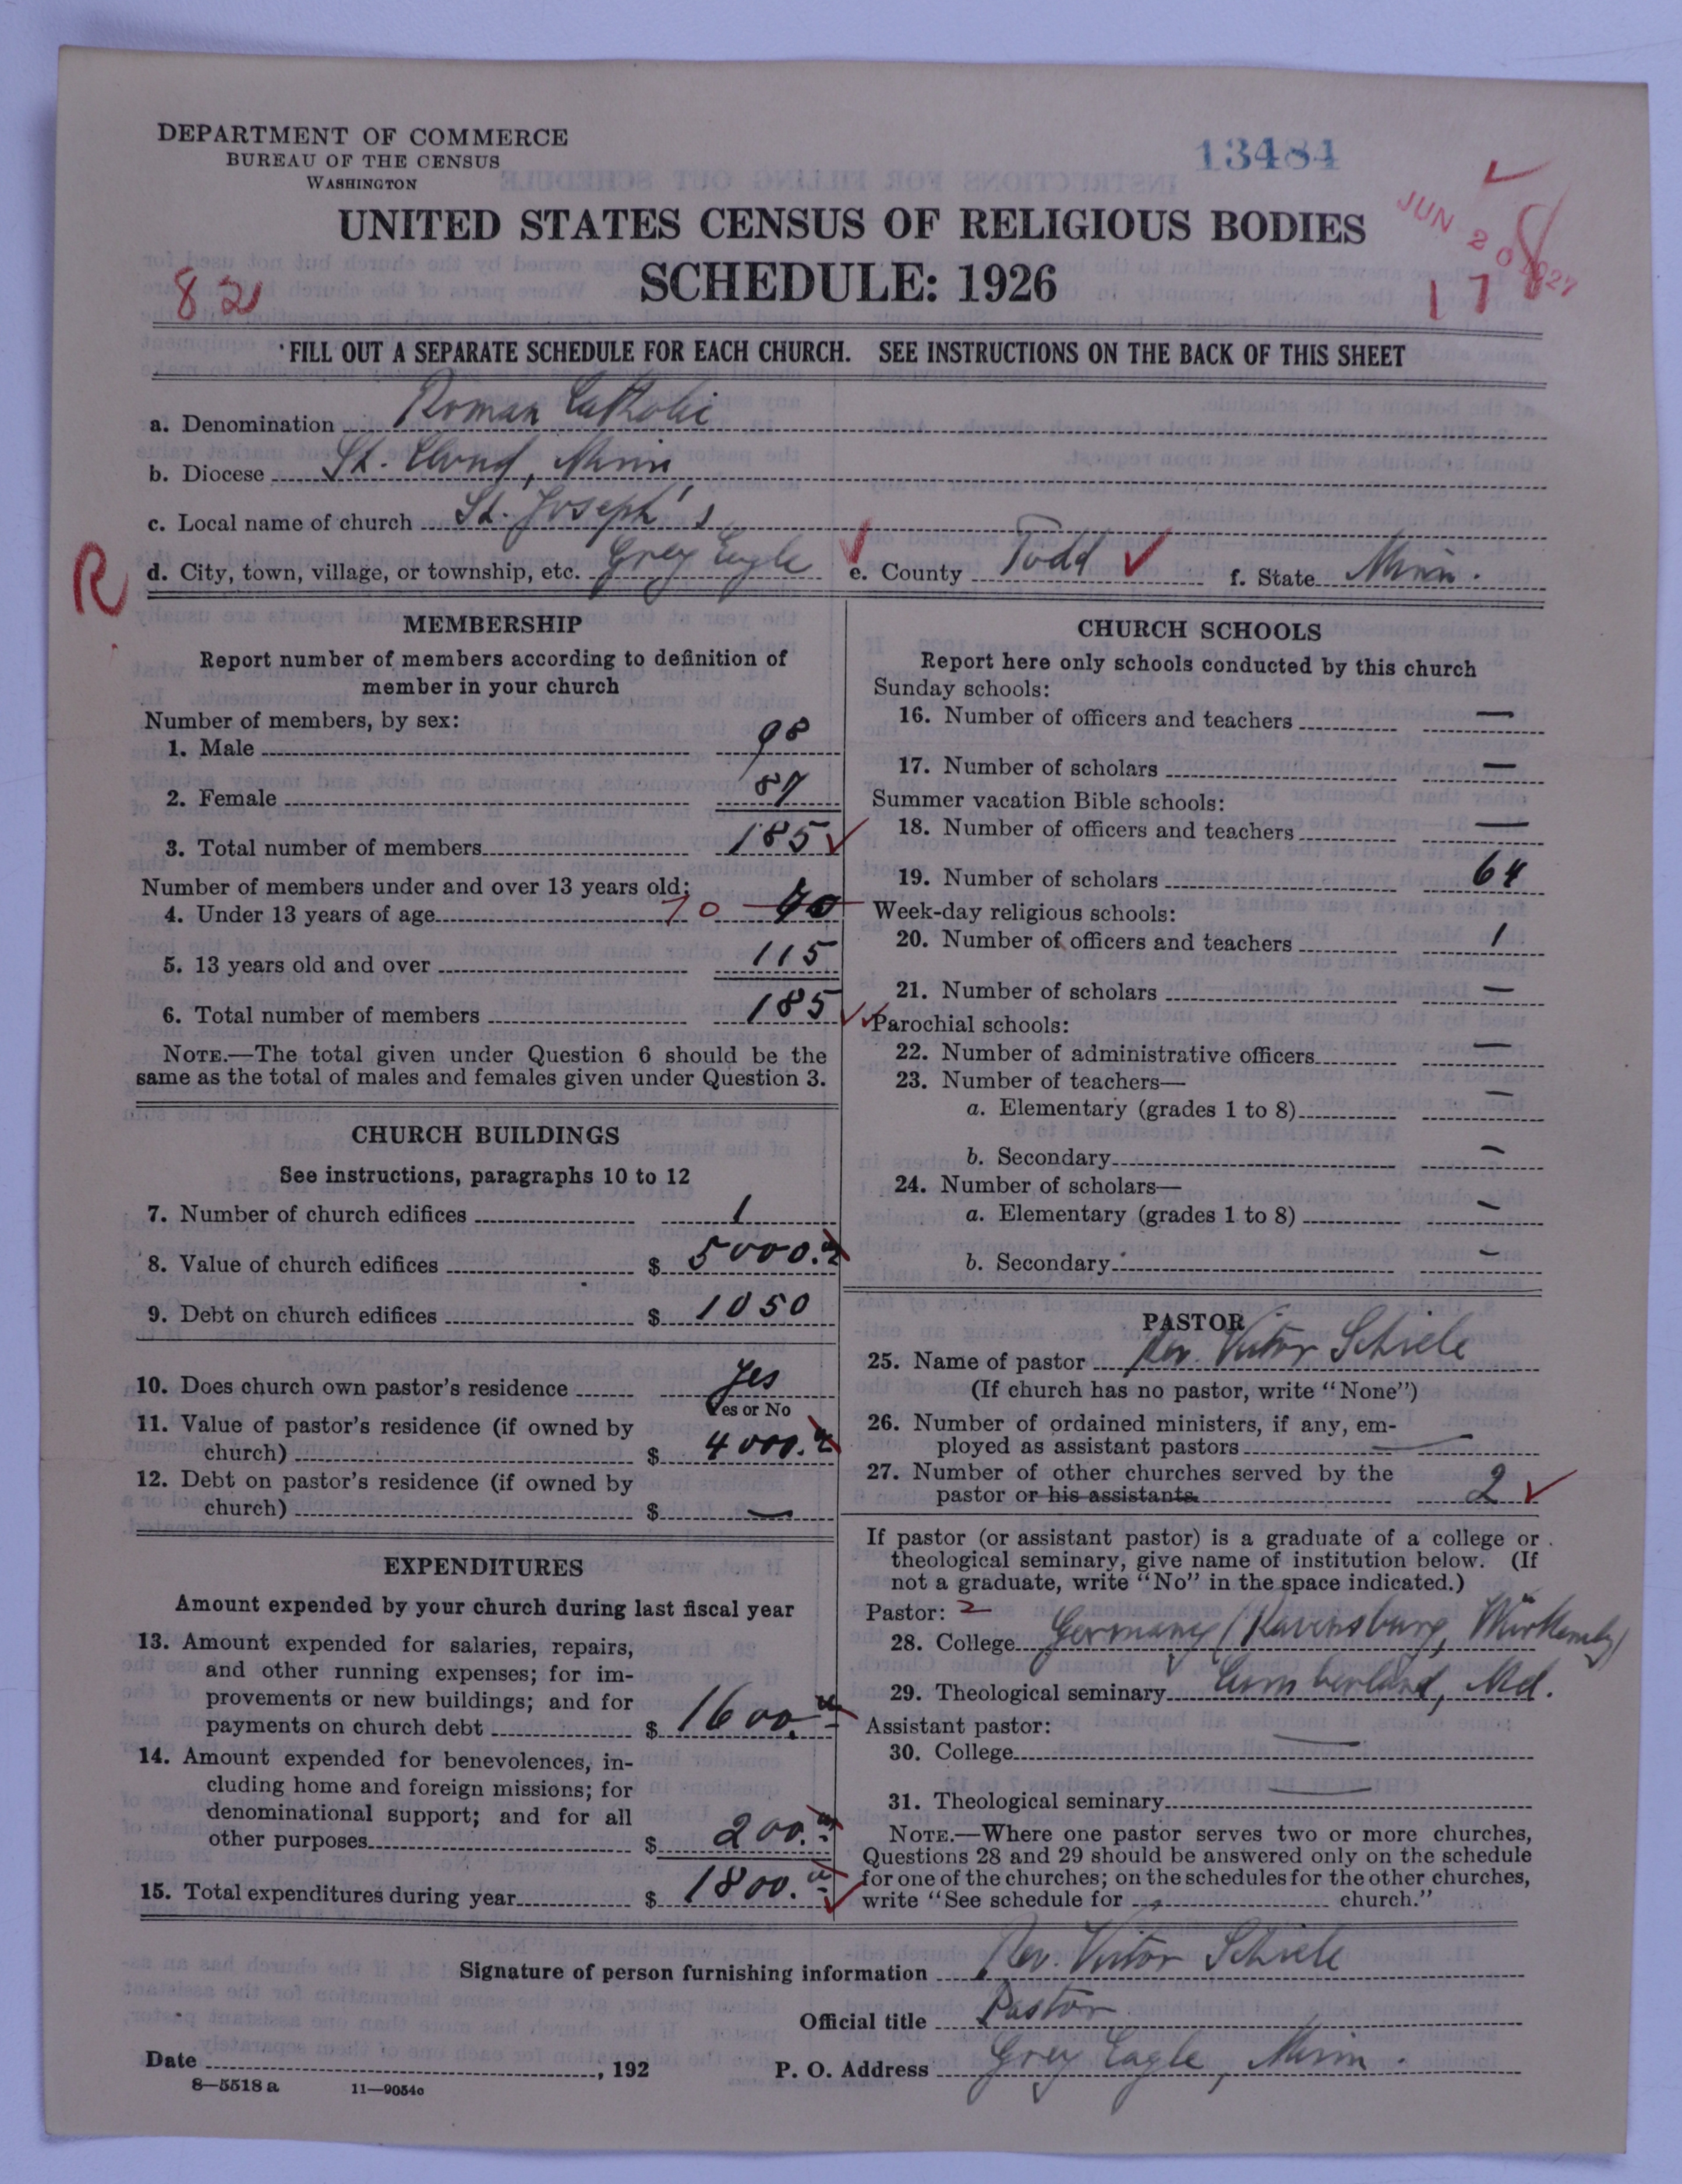 DEPARTMENT OF COMMERCE
BUREAU OF THE CENSUS
WASHINGTON
13484
UNITED STATES CENSUS OF RELIGIOUS BODIES
SCHEDULE: 1926
JUN 20 1927
82
178
FILL OUT A SEPARATE SCHEDULE FOR EACH CHURCH. SEE INSTRUCTIONS ON THE BACK OF THIS SHEET
a. Denomination Roman Catholic
b. Diocese St. Cloud, Minn.
c. Local name of church St. Joseph's
R
d. City, town, village, or township, etc. Grey Eagle e. County Todd f. State Minn.
MEMBERSHIP
Report number of members according to definition of
member in your church
Number of members, by sex:
1. Male 98
2. Female 87
3. Total number of members 185
Number of members under and over 13 years old:
4. Under 13 years of age 70 70
5. 13 years old and over 115
6. Total number of members 185
NOTE.—The total given under Question 6 should be the
same as the total of males and females given under Question 3.
CHURCH BUILDINGS
See instructions, paragraphs 10 to 12
7. Number of church edifices 1
8. Value of church edifices $ 5000.
9. Debt on church edifices $ 1050
10. Does church own pastor's residence Yes
Yes or No
11. Value of pastor's residence (if owned by
church) $ 4000.
12. Debt on pastor's residence (if owned by
church) $ —
EXPENDITURES
Amount expended by your church during last fiscal year
13. Amount expended for salaries, repairs,
and other running expenses; for im-
provements or new buildings; and for
payments on church debt $ 1600.
14. Amount expended for benevolences, in-
cluding home and foreign missions; for
denominational support; and for all
other purposes $ 200.
15. Total expenditures during year $ 1800.
CHURCH SCHOOLS
Report here only schools conducted by this church
Sunday schools:
16. Number of officers and teachers —
17. Number of scholars —
Summer vacation Bible schools:
18. Number of officers and teachers —
19. Number of scholars 64
Week-day religious schools:
20. Number of officers and teachers 1
21. Number of scholars —
Parochial schools:
22. Number of administrative officers —
23. Number of teachers—
a. Elementary (grades 1 to 8) —
b. Secondary —
24. Number of scholars—
a. Elementary (grades 1 to 8) —
b. Secondary —
PASTOR
25. Name of pastor Rev. Victor Schiele
(If church has no pastor, write "None")
26. Number of ordained ministers, if any, em-
ployed as assistant pastors —
27. Number of other churches served by the
pastor or his assistants 2
If pastor (or assistant pastor) is a graduate of a college or
theological seminary, give name of institution below. (If
not a graduate, write "No" in the space indicated.)
Pastor: 2
28. College Germany (Ravensburg,
29. Theological seminary Cumberland, Md.
Assistant pastor:
30. College —
31. Theological seminary —
NOTE.—Where one pastor serves two or more churches,
Questions 28 and 29 should be answered only on the schedule
for one of the churches; on the schedules for the other churches,
write "See schedule for church."
Signature of person furnishing information Rev. Victor Schiele
Official title Pastor
Date , 192 P. O. Address Grey Eagle, Minn.
8—5518 a 11—9054c